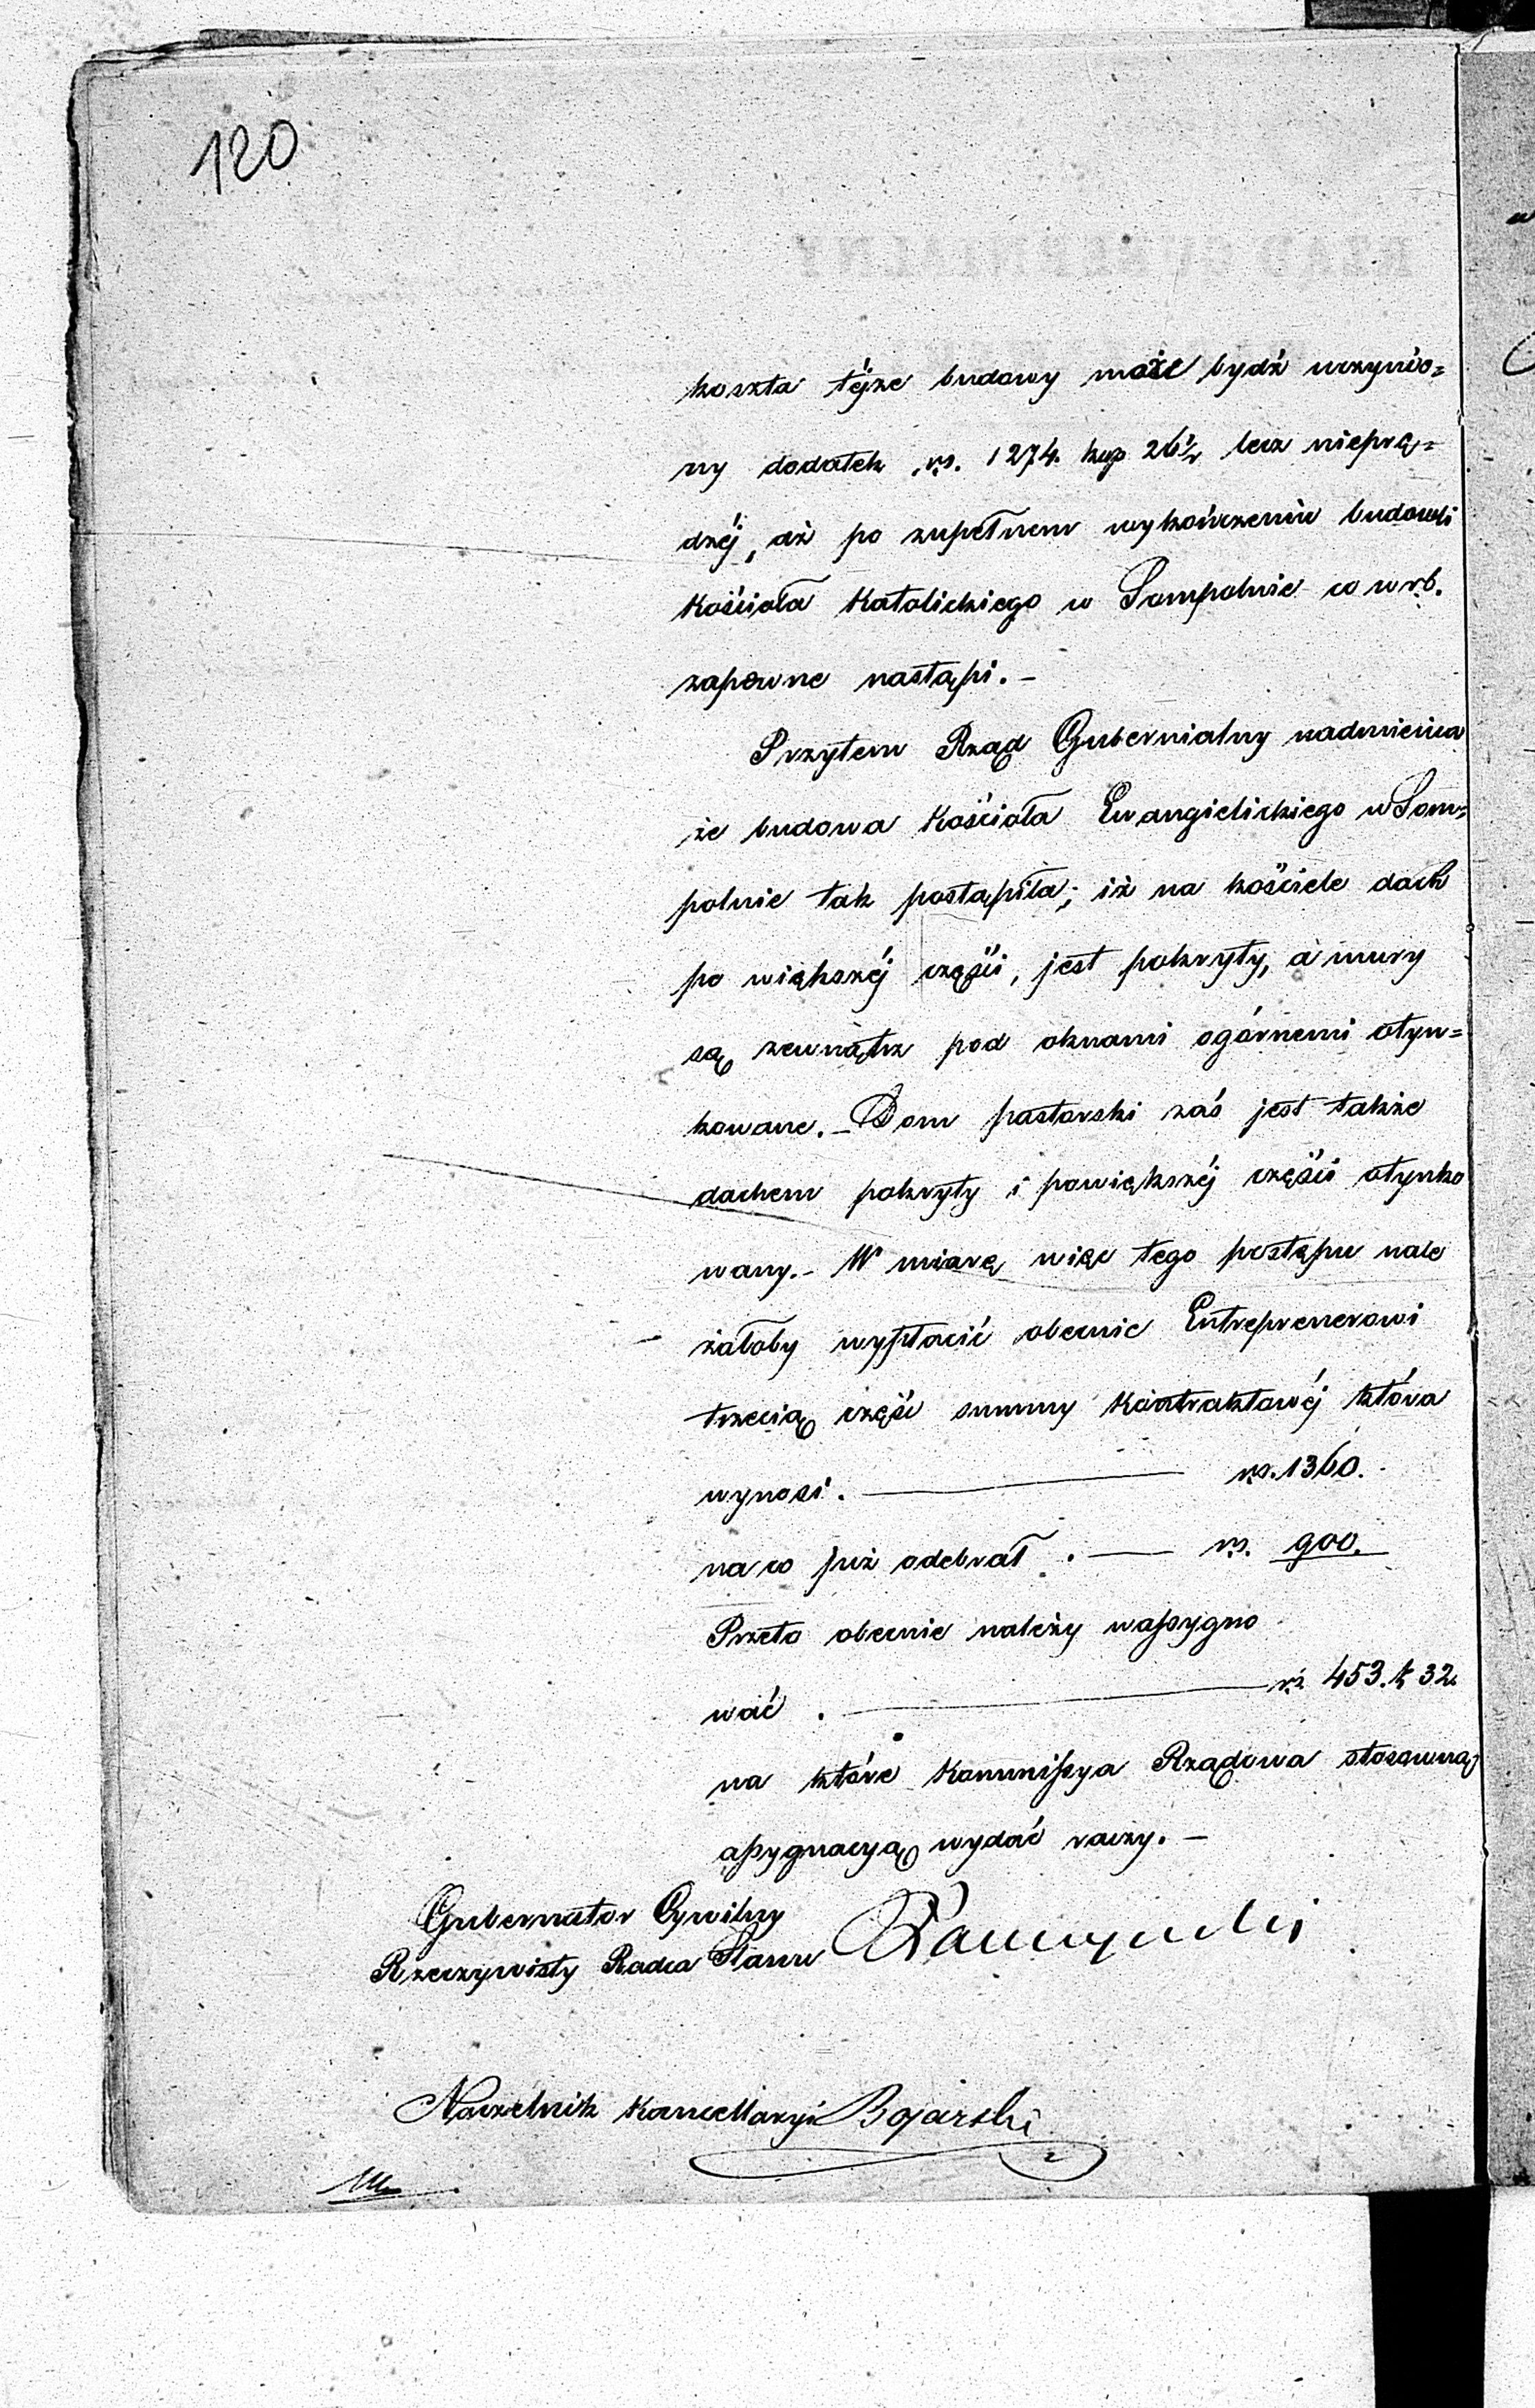 120
koszta téjze budowy może bydź uczynio=
ny dodatek rs. 1274. kop 26½ lecz nieprę=
dzéj, aż po zupełnem wykończeniu budowli
Kościoła Katolickiego w Sompolnie co w r.b.
zapewne nastąpi. –
Przytem Rząd Gubernialny nadmienia
że budowa Kościoła Ewangielickiego w Som=
polnie tak postąpiła; iż na kościele dach
po większéj części, jest pokryty, a mury
są zewnątrz pod oknami ogórnemi otyn=
kowane. – Dom pastorski zaś jest także
dachem pokryty i powiększéj części otynko
wany. – W miarę więc tego postępu nale
żałoby wypłacić obecnie Entreprenerowi
trzecią część summy Kontraktowéj która
wynosi. — rs. 1360.
na co już odebrał . — rs. 900.
Przeto obecnie należy wassygno
wać . — rs. 453. k 32.
na które Kommissya Rządowa stosowną
assygnacyą wydać raczy. –
Gubernator Cywilny
Rzeczywisty Radca Stanu
Naczelnik Kancellaryi Bojarski